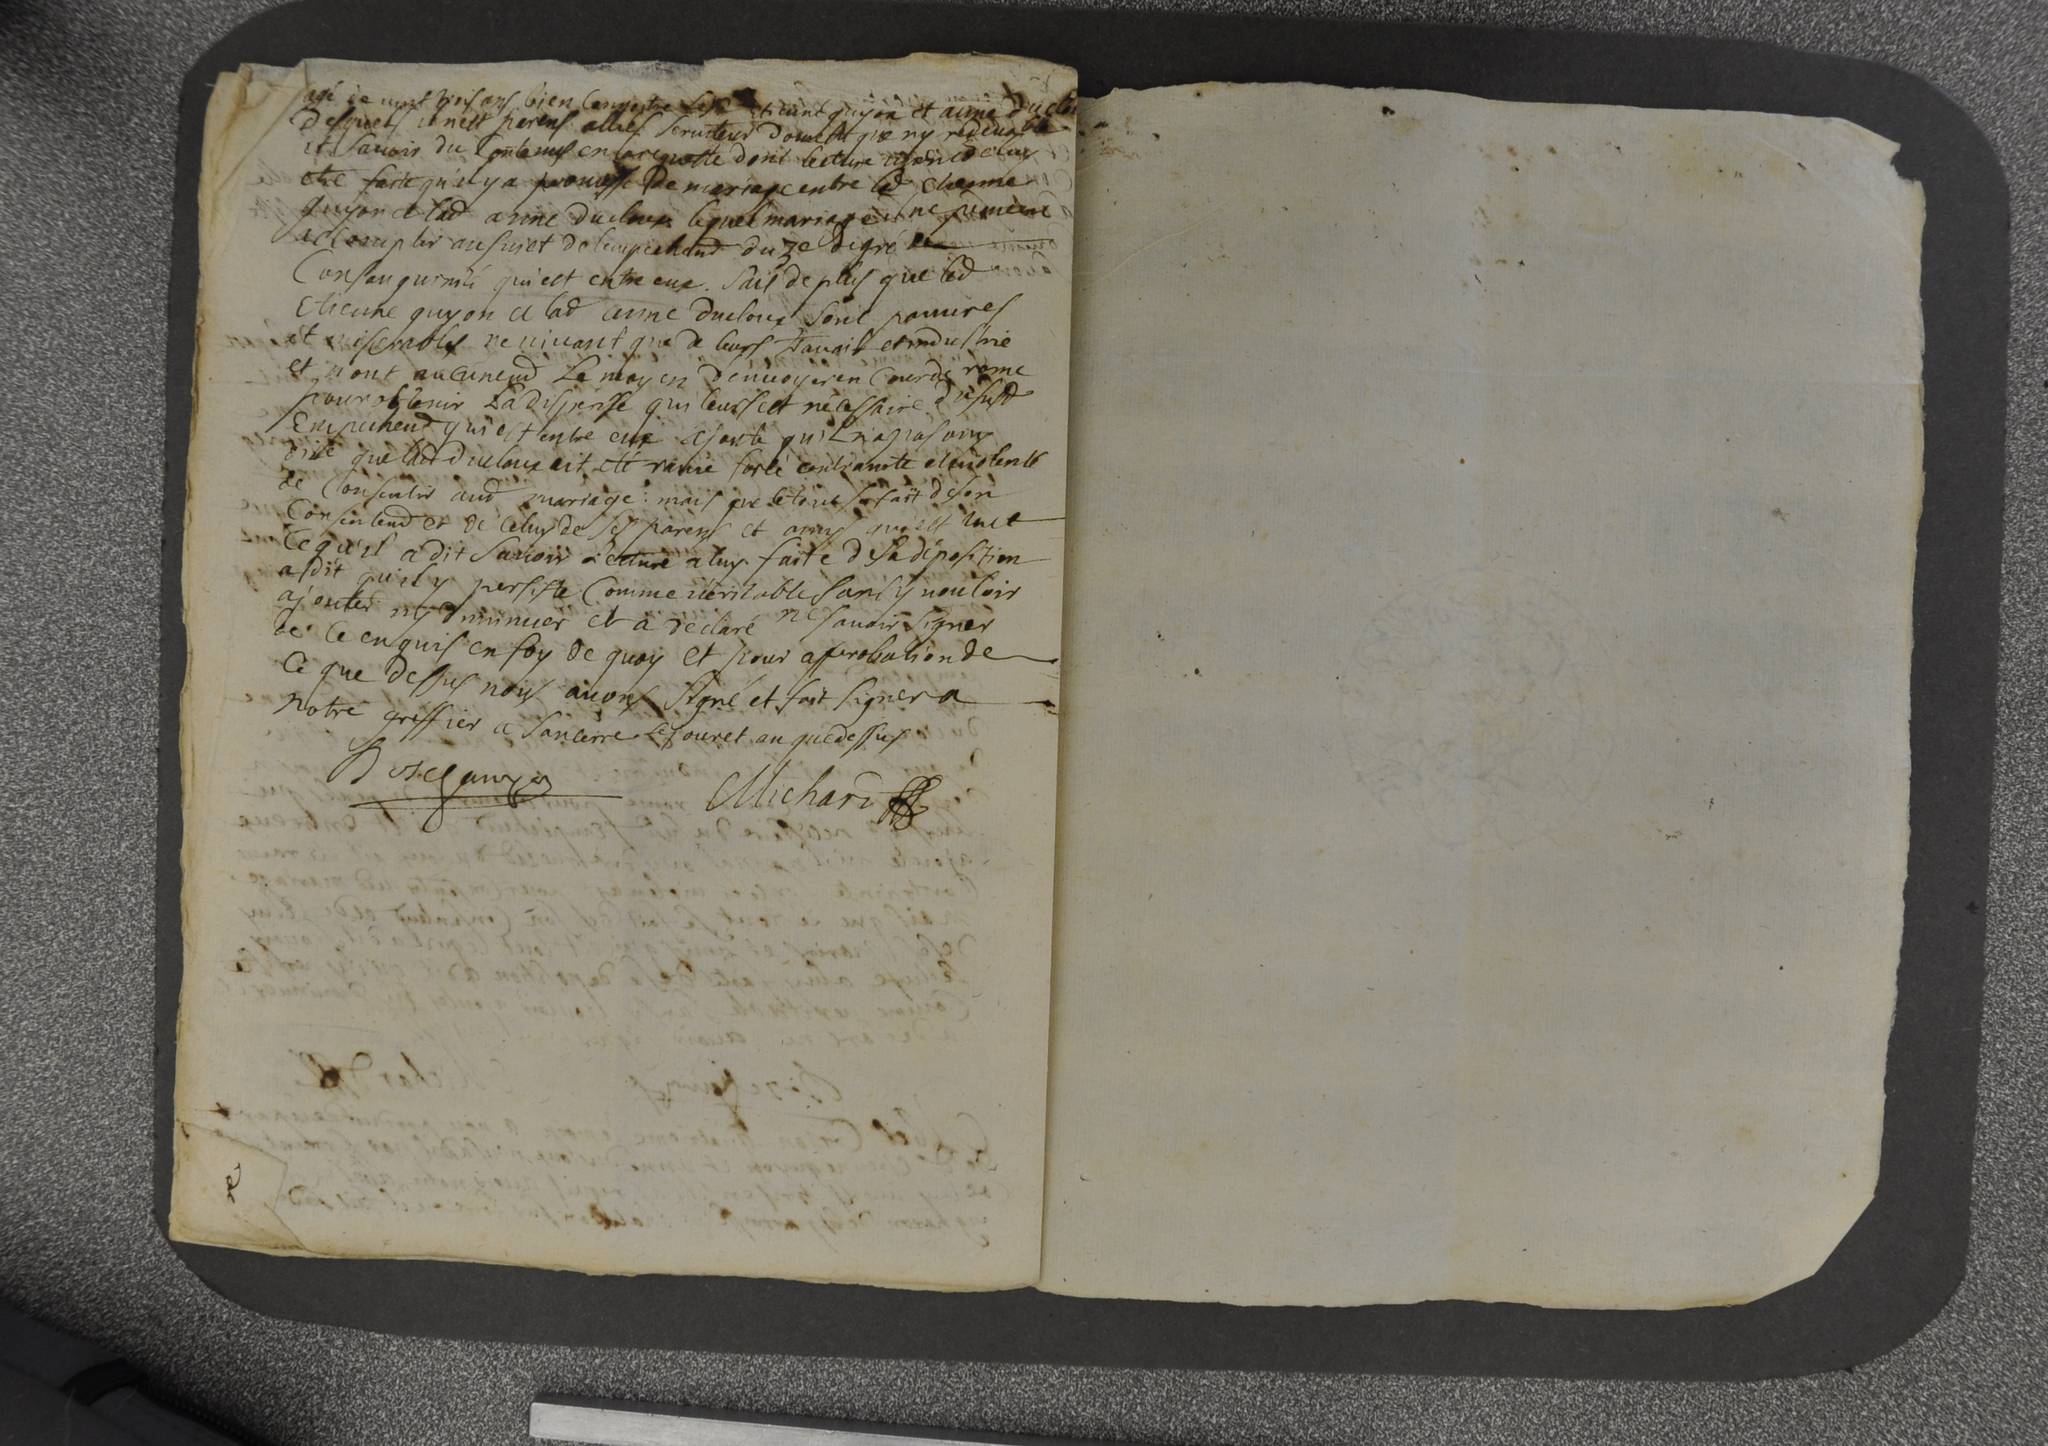 agé de vingt trois ans bien connoitre lesd etienne guyon et anne duclou
desquels il nest parens alliés serviteur domestique ny redevable
et savoir du contenu en la requette dont lecture
eté faite qu'il y a promesse de mariage entre led etienne
guyon et lad anne ducloux lequel mariage il ne peuvent
accomplir au sujet de lempechemt du 3e degré de
Consanguinité qui est entre eux. sait de plus que led
etienne guyon et lad anne ducloux sont pauvres
et miserables ne vivant que de leurs travail et industrie
et n'ont aucunemt le moyen d'envoyer en Cour de rome
pour obtenir la dispense qui leurs est necessaire dusust
Empechemt qui est entre eux ajoute qu'il n'a pas ouy
dire que lad ducloux ait eté ravie forcé contrainte et violenté
de Consentir aud mariage : mais que le tout se fait de son
Consentemt et de celuy de ses parens et amys qui est tout
Ce qu'il a dit savoir lecture a luy faite de sa deposition
a dit qu'il y persiste Comme veritable sans y vouloir
ajouter ny diminuer et a declaré ne savoir signer
de ce enquis en foy de quoy et pour aprobation de
Ce que dessus nous avons signé et fait signer a
notre greffier a Sancerre les jour et an que dessus
Michard